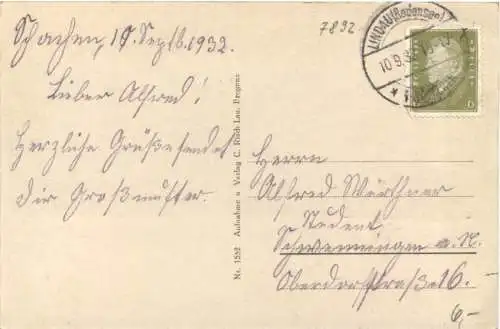 7892
Schachen, 10. Septb. 1932.
Lieber Alfred!
Herzliche Grüße sendet
dir Großmutter.
LINDAU (Bodensee)
10.9.32
Nr. 1552 Aufnahme u Verlag C. Risch Lau, Bregenz
6
Herrn
Alfred Würthner
Student
Schwenningen a. N.
Oberdorfstraße 16.
6,-